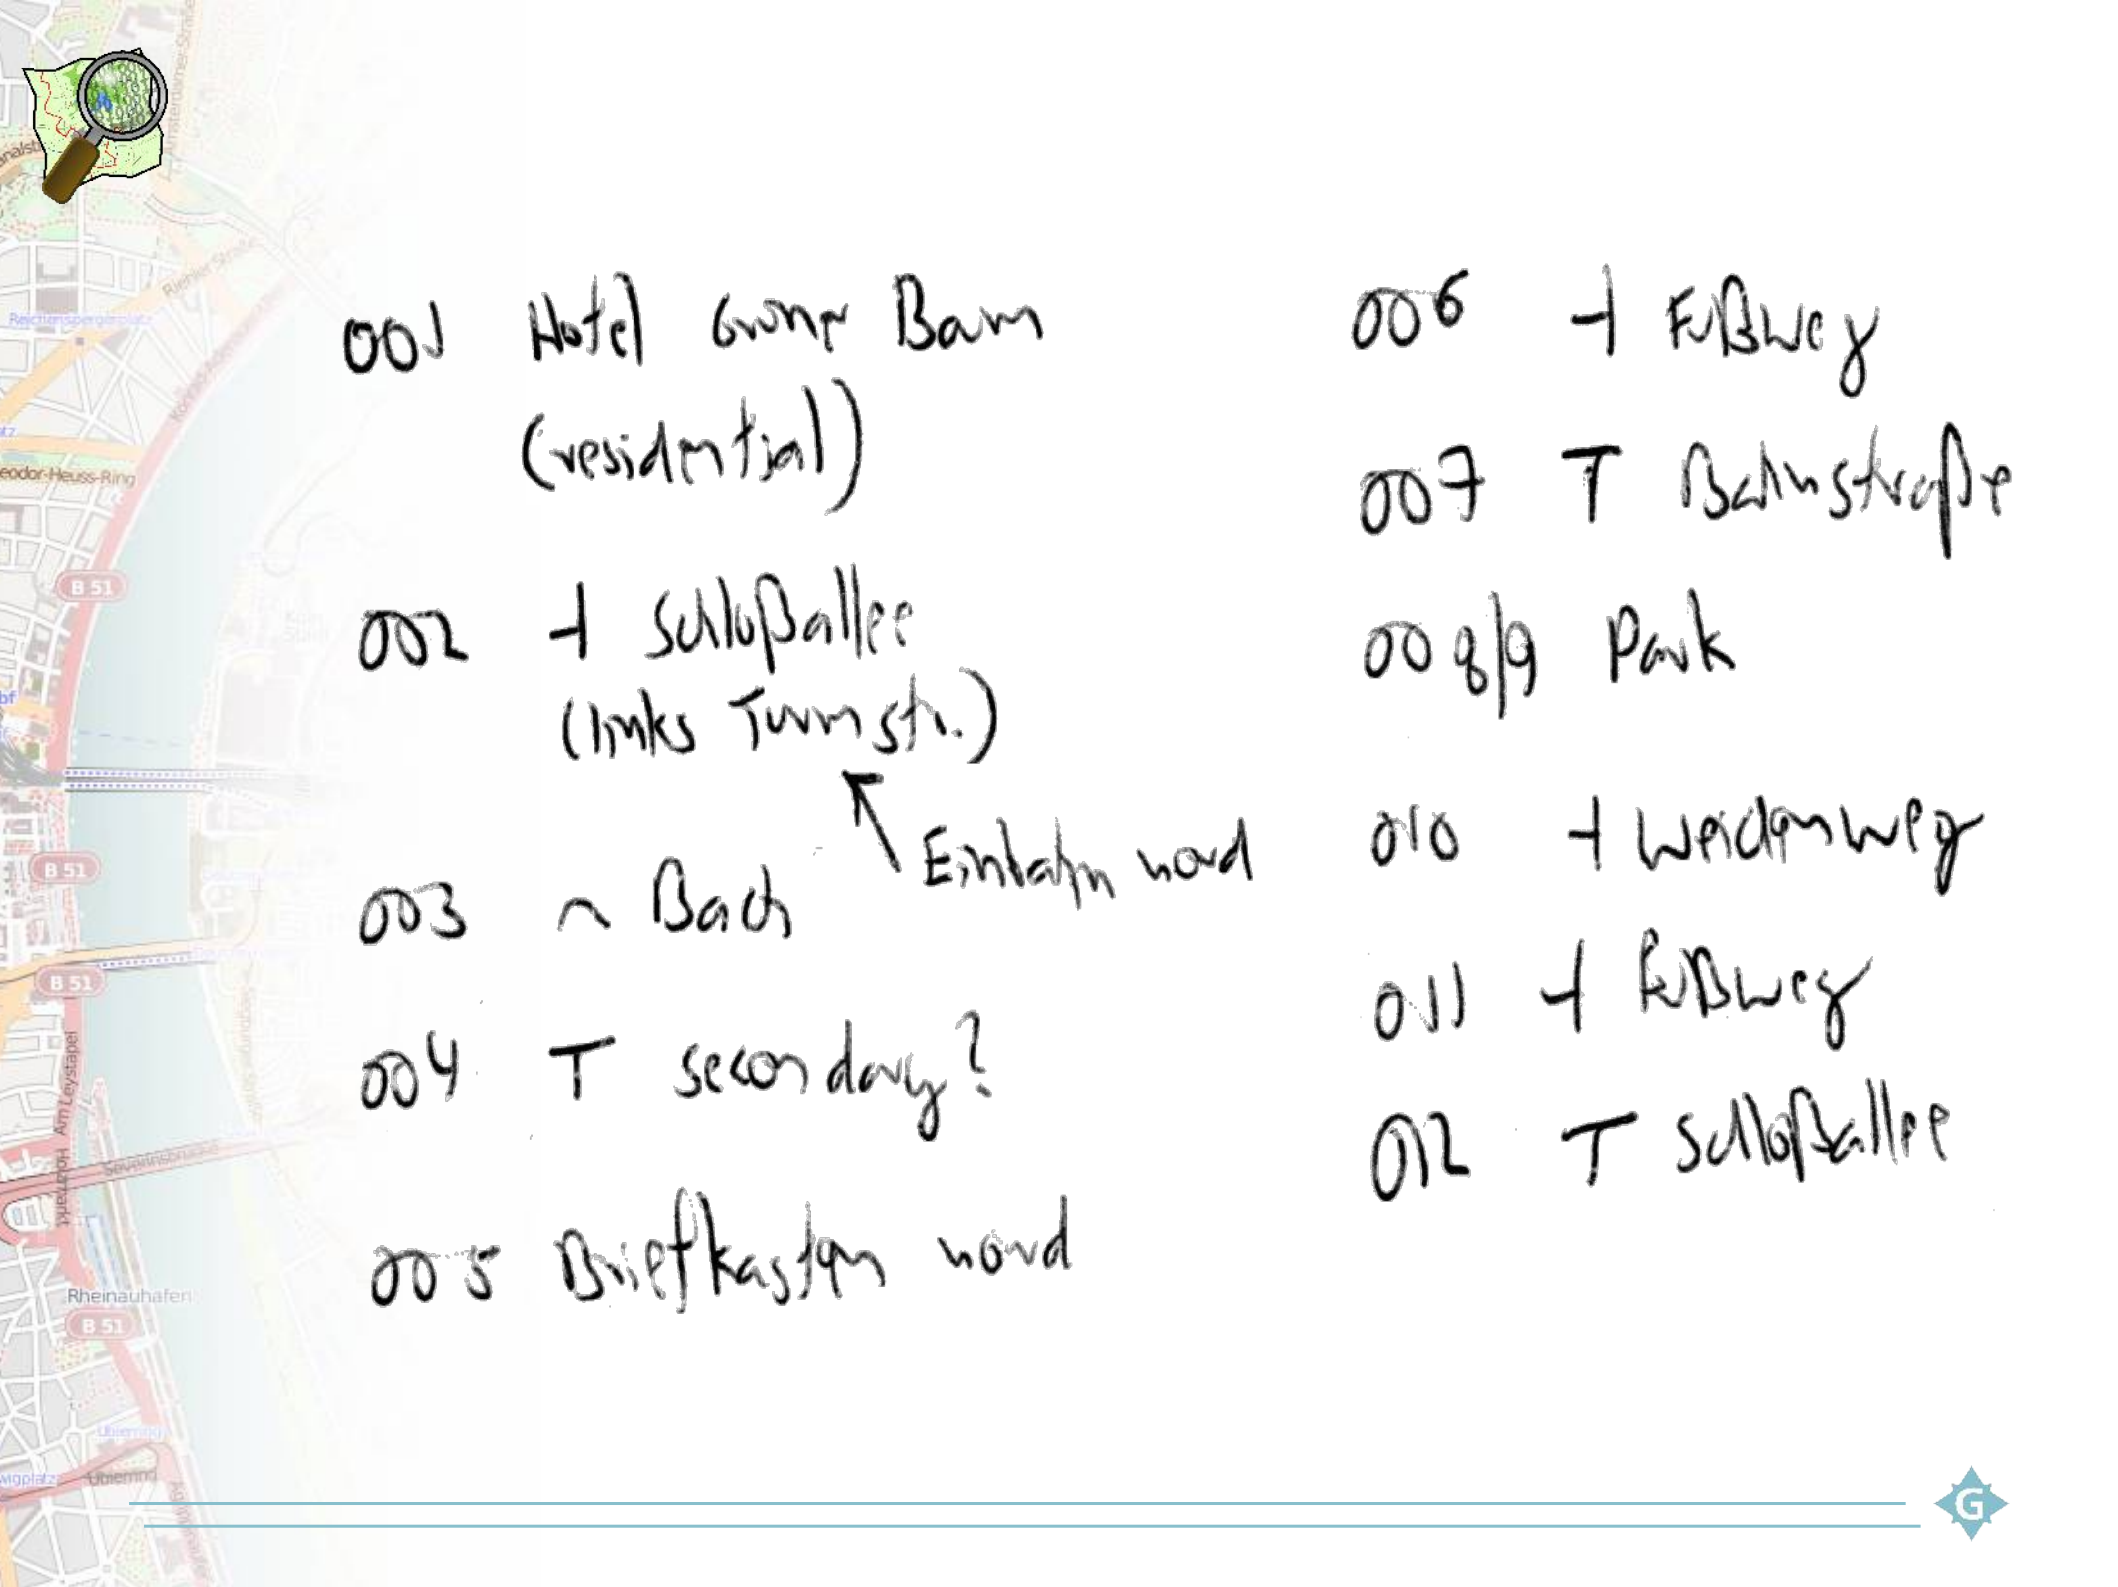 001 Hotel Grüner Baum
(residential)
002 ⊣ Schloßallee
(links Turmstr.)
Einbahn nord
003 ~ Bach
004 T secondary?
005 Briefkasten nord
006 ⊣ Fußweg
007 T Bahnstraße
008/9 Park
010 ⊣ Weidenweg
011 ⊣ Fußweg
012 T Schloßallee
Riehler Straße
Reichenspergerplatz
Theodor-Heuss-Ring
B 51
B 51
B 51
Am Leystapel
Holzmarkt
Severinsbrücke
Rheinauhafen
B 51
Ubierring
Ubierring
G